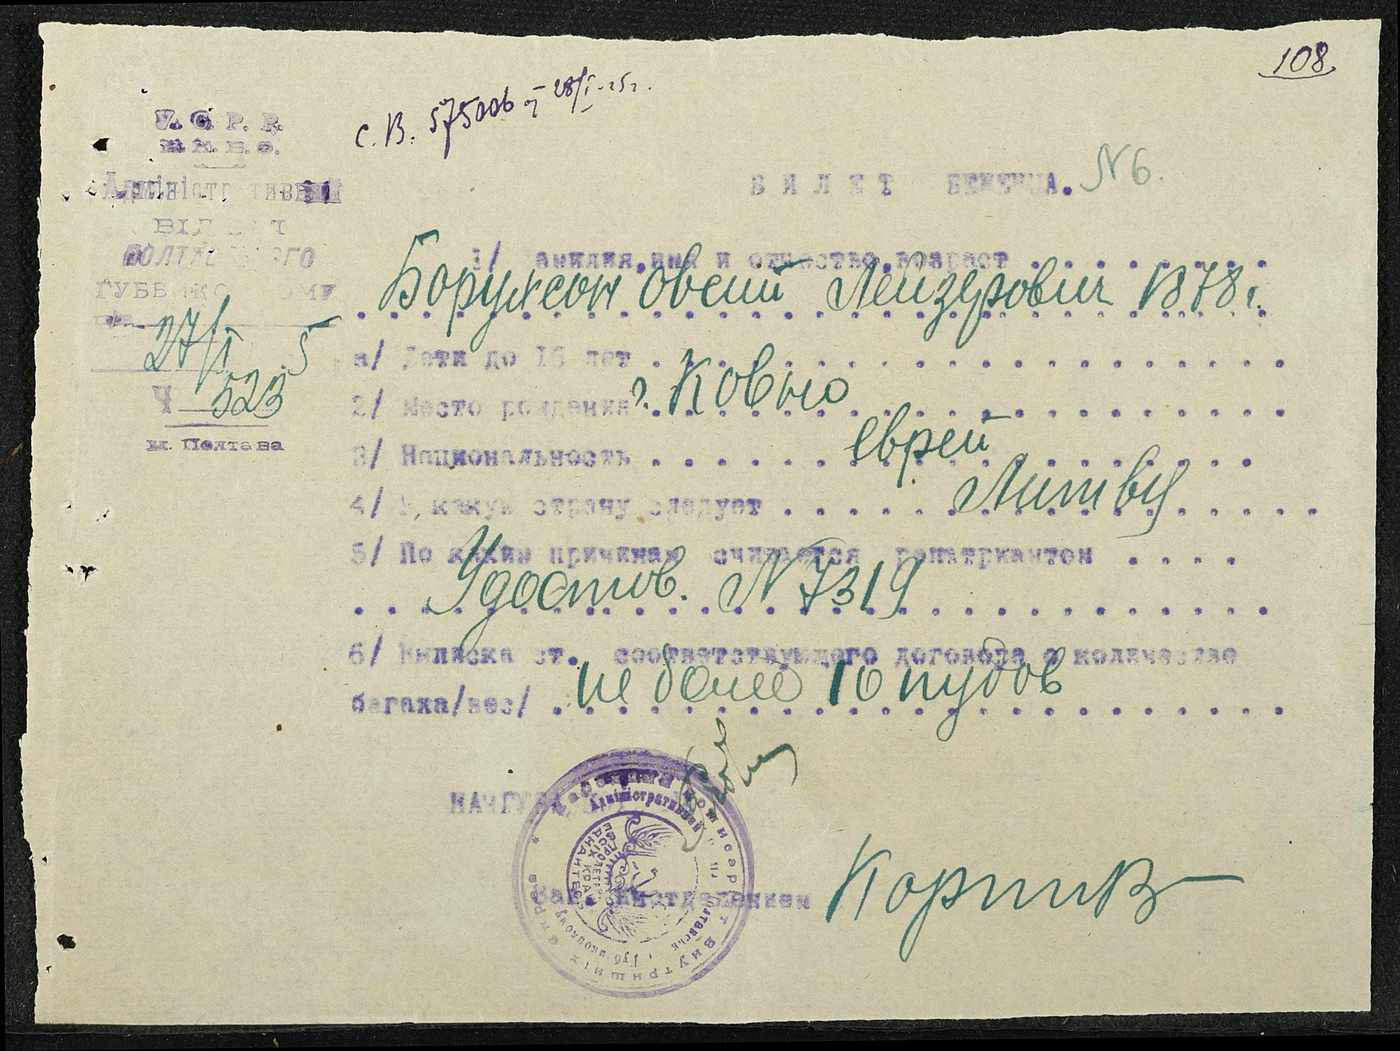 108
С.В. 575006 от 28/I-25г.
У.С.Р.Р.
Н.К.В.С.
Адміністративний
ВІДДІЛ
ПОЛТАВСЬКОГО
ГУБВИКОНКОМУ
27/I 5
Ч 523
м. Полтава
БИЛЕТ БЕЖЕНЦА. N6.
1/ Фамилия, имя и отчество, возраст . . . . . .
Борухсон Овсий Лейзерович 1878 г.
а/ Дети до 16 лет . . . . . . . . . . . . . .
2/ Место рождения г. Ковно
3/ Национальность . . . . . еврей
4/ В какую страну следует . . . . Литву
5/ По каким причинам считается репатриантом . . . .
Удостов. N 7319
6/ Выписка ст. соответствующего договора о количестве
багажа/вес/ не более 10 пудов
Зав. Иностделением
Народний Комисаріат Внутришніх Справ
Адміністративний
ПРОЛЕТАРІ ВСІХ КРАЇН ЄДНАЙТЕСЯ